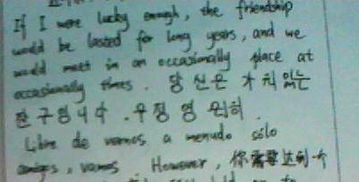 If I were lucky enough, the friendship
would be lasted for long years, and we
would meet in an occasionally place at
occasionally times. 당신은 가치있는
친구입니다. 우정 영원히.
Libre de vernos a menudo sólo
amigos, vamos However, 你需要达到一个